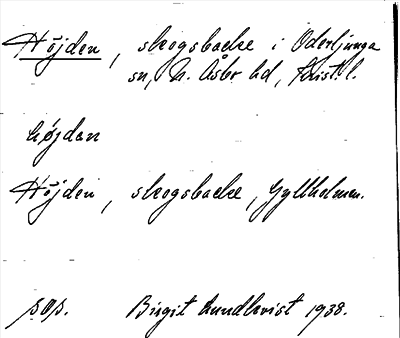 Höjden, skogsbacke i Oderljunga
sn, N. Åsbo hd, Krist. l.
höjdan
Höjden, skogsbacke, Gyllholmen.
pop. Birgit Lundkvist 1938.